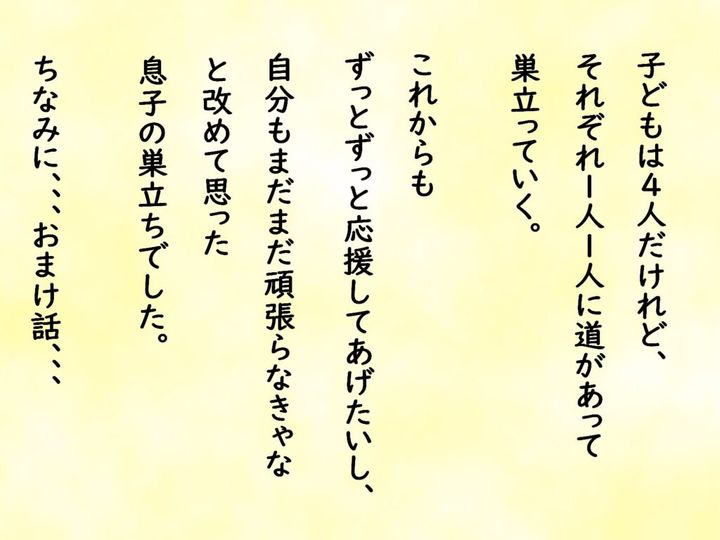 子どもは４人だけれど、
それぞれ１人１人に道があって
巣立っていく。
これからも
ずっとずっと応援してあげたいし、
自分もまだまだ頑張らなきゃな
と改めて思った
息子の巣立ちでした。
ちなみに、、、おまけ話、、、